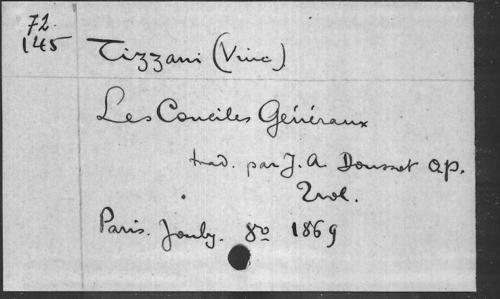 72
145
Tizzani (Vinc)
Les Conciles Généraux
trad. par J. A. Doussot o.p.
2 vol.
Paris. Jouby. 8º 1869